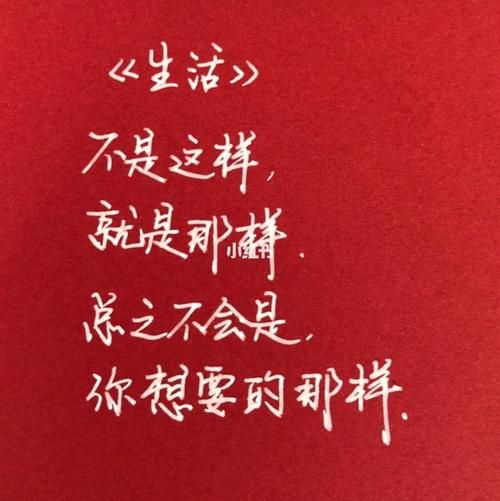 《生活》
不是这样，
就是那样．
小红书
总之不会是，
你想要的那样．